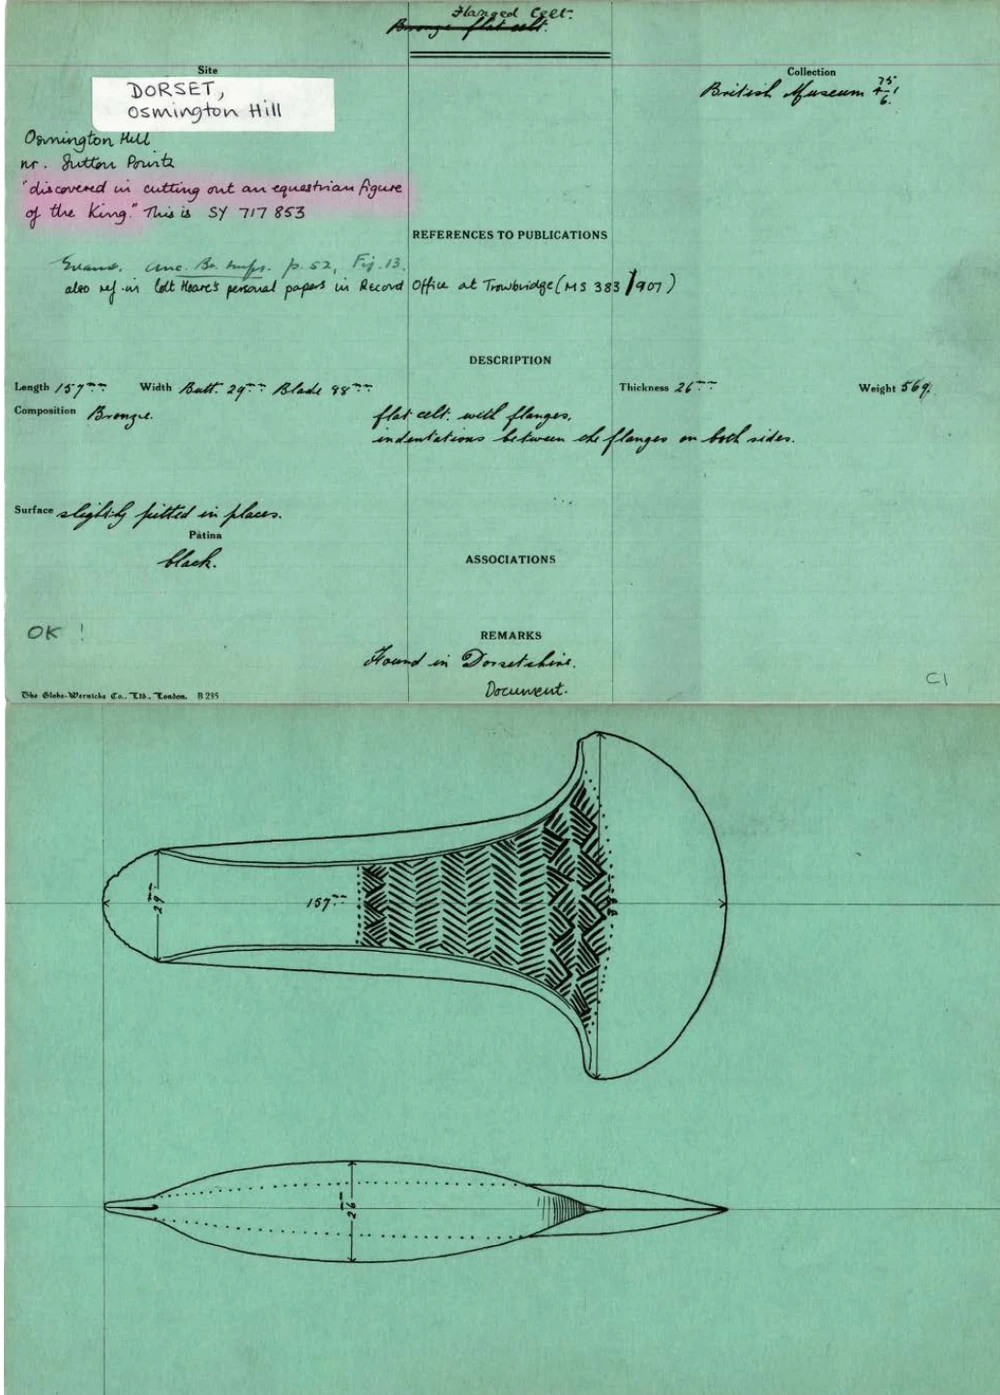 Flanged Celt.
Bronze flat celt.
Site
DORSET,
Osmington Hill
Collection
British Museum 75 4-1 6.
Osmington Hill
nr. Sutton Pointz
"discovered in cutting out an equestrian figure
of the King." This is SY 717 853
REFERENCES TO PUBLICATIONS
Evans. Anc. Br. Imps. p. 52, Fig. 13.
also ref in Colt Hoare's personal papers in Record Office at Trowbridge (MS 383/907)
DESCRIPTION
Length 157mm Width Butt. 29mm Blade 88mm Thickness 26mm Weight 569.
Composition Bronze.
flat celt. with flanges.
indentations between the flanges on both sides.
Surface slightly pitted in places.
Patina
black.
ASSOCIATIONS
OK !
REMARKS
Found in Dorsetshire.
Document.
C1
The Globe-Wernicke Co., Ltd., London. B 295
29mm
157mm
88
26mm